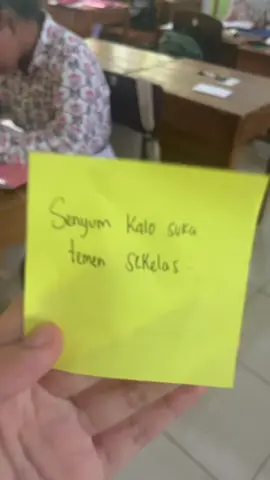 Senyum kalo suka
temen sekelas